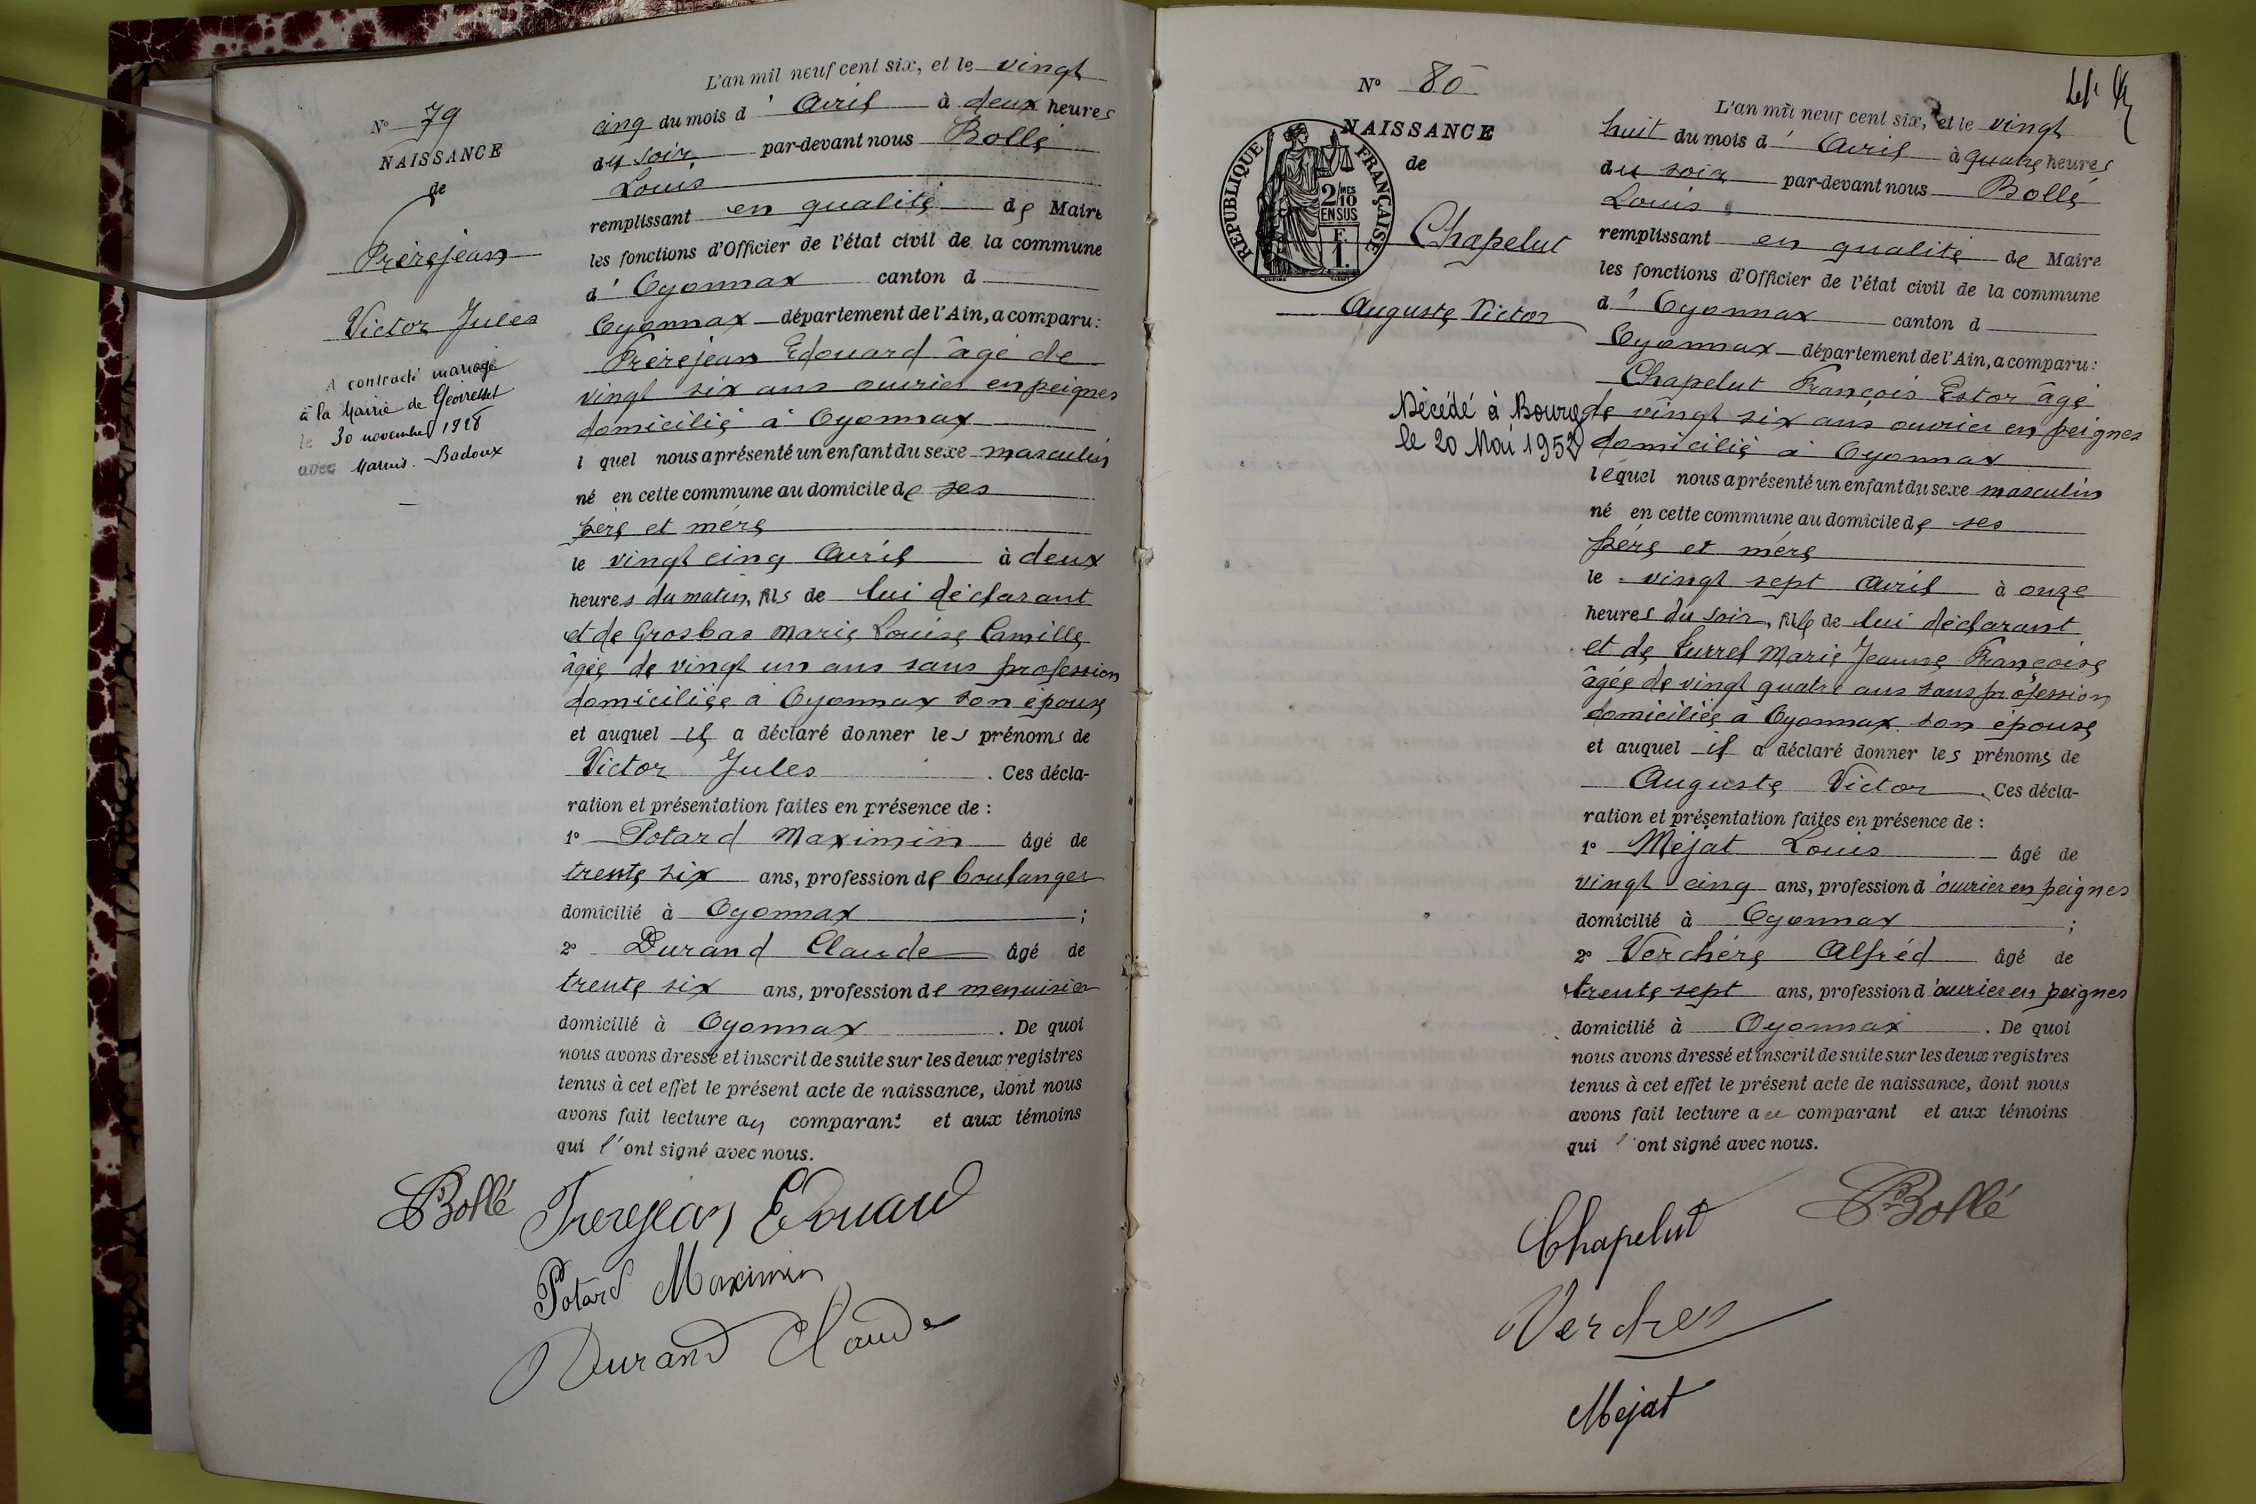 N° 79
NAISSANCE
de
Frèrejean
Victor Jules
A contracté mariage
à la Mairie de
le 30 novembre
avec Badoux
L'an mil neuf cent six, et le vingt
cinq du mois d' Avril à deux heures
du soir, par-devant nous Bollé
Louis
remplissant en qualité de Maire
les fonctions d'Officier de l'état civil de la commune
d' Oyonnax canton d
Oyonnax département de l'Ain, a comparu :
Frèrejean Edouard âgé de
vingt six ans ouvrier en peignes
domicilié à Oyonnax
l quel nous a présenté un enfant du sexe masculin
né en cette commune au domicile de ses
père et mère
le vingt cinq Avril à deux
heures du matin, fils de lui déclarant
et de Grosbas Marie Louise Camille
âgée de vingt un ans sans profession
domiciliée à Oyonnax son épouse
et auquel il a déclaré donner les prénoms de
Victor Jules . Ces décla-
ration et présentation faites en présence de :
1° Potard Maximin âgé de
trente six ans, profession de boulanger
domicilié à Oyonnax ;
2° Durand Claude âgé de
trente six ans, profession de menuisier
domicilié à Oyonnax . De quoi
nous avons dressé et inscrit de suite sur les deux registres
tenus à cet effet le présent acte de naissance, dont nous
avons fait lecture au comparant et aux témoins
qui l'ont signé avec nous.
Bollé Frerejean Edouard
Potard Maximin
Durand Claude
N° 80
NAISSANCE
de
RÉPUBLIQUE FRANÇAISE
2/10 MES
EN SUS
F.
1.
Chapelut
Auguste Victor
Décédé à Bourg
le 20 Mai 1952
L'an mil neuf cent six, et le vingt
huit du mois d' Avril à quatre heures
du soir par-devant nous Bollé
Louis
remplissant en qualité de Maire
les fonctions d'Officier de l'état civil de la commune
d' Oyonnax canton d
Oyonnax département de l'Ain, a comparu :
Chapelut François Estor âgé
de vingt six ans ouvrier en peignes
domicilié à Oyonnax
lequel nous a présenté un enfant du sexe masculin
né en cette commune au domicile de ses
père et mère
le vingt sept Avril à onze
heures du soir, fils de lui déclarant
et de Lurrel Marie Jeanne Françoise
âgée de vingt quatre ans sans profession
domiciliée à Oyonnax son épouse
et auquel il a déclaré donner les prénoms de
Auguste Victor . Ces décla-
ration et présentation faites en présence de :
1° Méjat Louis âgé de
vingt cinq ans, profession d'ouvrier en peignes
domicilié à Oyonnax ;
2° Verchère Alfréd âgé de
trente sept ans, profession d'ouvrier en peignes
domicilié à Oyonnax . De quoi
nous avons dressé et inscrit de suite sur les deux registres
tenus à cet effet le présent acte de naissance, dont nous
avons fait lecture au comparant et aux témoins
qui l'ont signé avec nous.
Chapelut Bollé
Verchere
Mejat